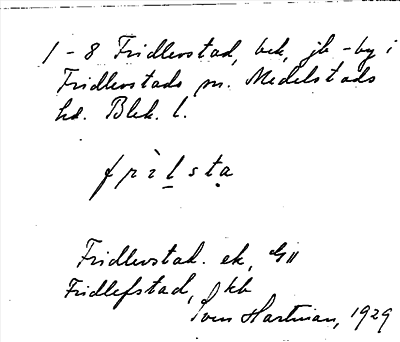 1-8 Fridlevstad, bek, jb -by i
Fridlevstads sn. Medelstads
hd. Blek. l.
frìlsta
Fridlevstad. ek, GII
Fridlefstad, kb
Sven Hartman, 1929